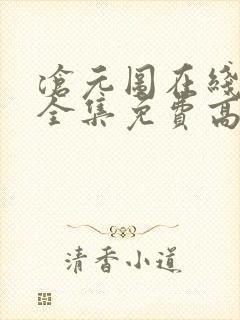 滄元圖在綫
全集免費高
清香小道